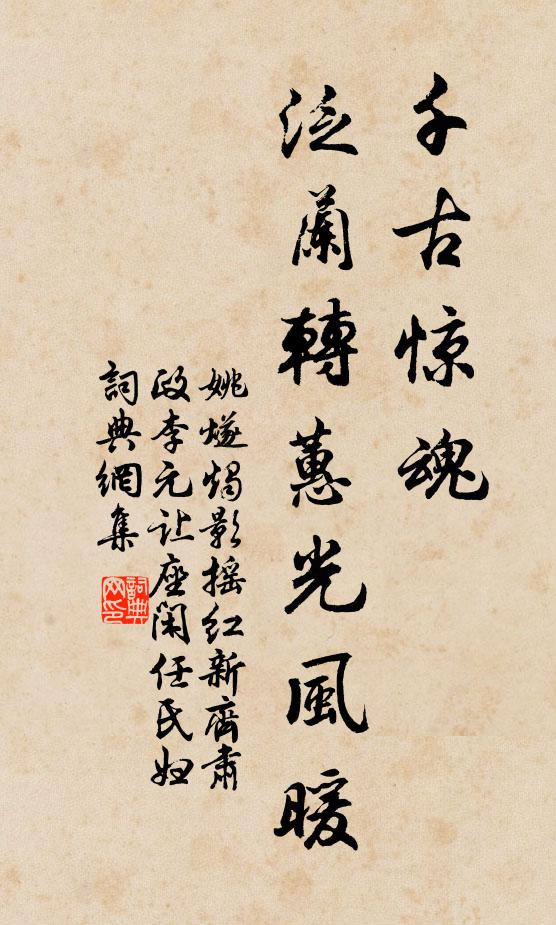 千古惊魂
泛蘭轉蕙光風暖
姚燧燭影搖红新齊肅
政李元让座閑任氏妇
詞典網集
詞典网印